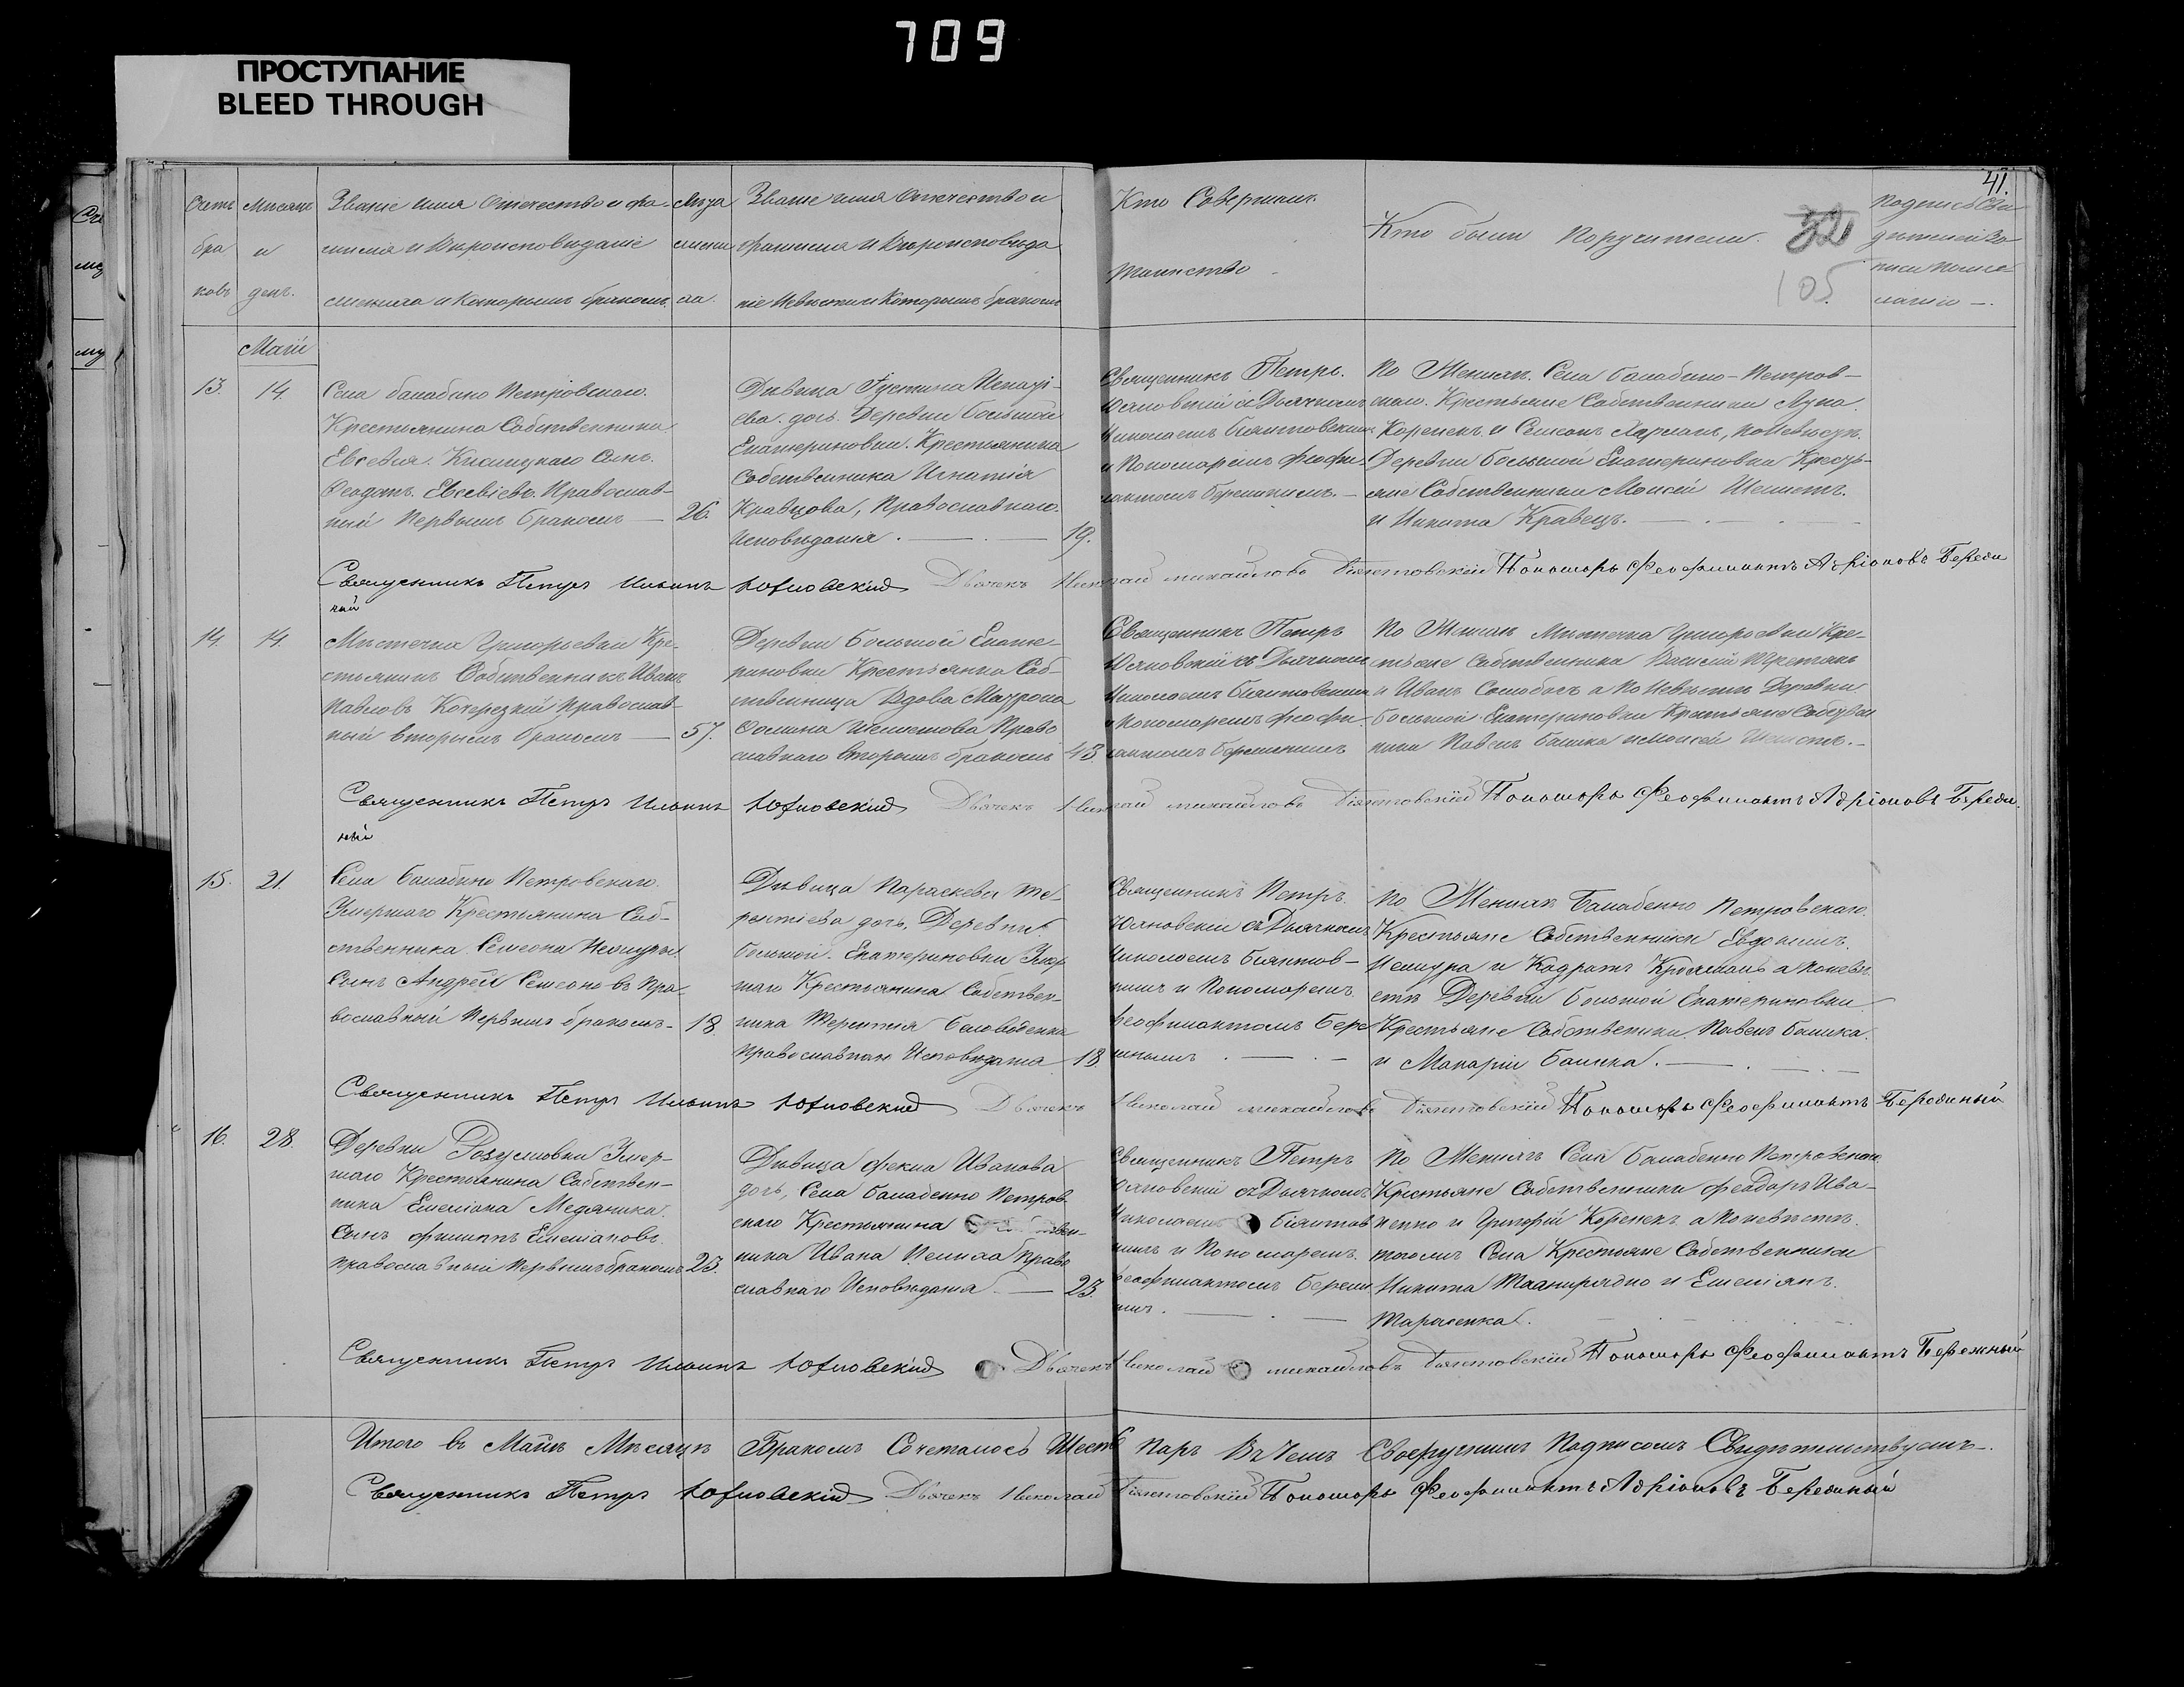 709
ПРОСТУПАНИЕ
BLEED THROUGH
41.
Счетъ бра ковъ
Мѣсяцъ и день.
Званіе имя Отечество и фа-
милія и Вѣроисповѣданіе
жениха и Которымъ бракомъ.
Лѣта жениха.
Званіе имя Отчество и
фамилія и Вѣроисповѣда
ніе Невѣсты и Которымъ бракомъ
Кто Совершилъ
таинство
Кто были Поручители.
32
105
Подписъ Сви
дѣтелей За
писи по же
ланію —.
Маій
13. 14.
Села балабино Петровскаго.
Крестьянина Собственника
Евсевія. Кислицкаго Сынъ.
Феодотъ. Евсевіевъ. Православ-
ный Первымъ бракомъ — 26.
Дѣвица Іустина Игнаті-
ева. дочь. Деревни большой
Екатериновки. Крестьянина
Собственника Игнатія
Кравцова, Православнаго.
Исповѣданія. — 19.
Священникъ Петръ.
Юзновскій съ Дьячкомъ
Николаемъ Біянтовскимъ
и Пономаремъ Феофи-
лактомъ Бережнымъ. —
По Женихѣ. Села балабино-Петров-
скаго. Крестьяне Собственники Лука.
Коренекъ и Семенъ Харланъ, по Невѣстѣ.
Деревни большой Екатериновки Кресть-
яне Собственники Моисей Шеметъ.
и Никита Кравецъ.
Священникъ Петръ Ильинъ Юзновскій Дьячекъ Николай михайловъ Біянтовскій Пономарь Феофилактъ Адріановъ Береж
ный
14. 14.
Мѣстечка Григорьевки Кре-
стьянинъ Собственникъ Иванъ
Павловъ Кочерезкій Православ-
ный вторымъ бракомъ — 57.
Деревни большой Екате-
риновки Крестьянка Соб-
ственница Вдова Матрона
Фомина Шеметова Право
славнаго Вторымъ бракомъ 43.
Священникъ Петръ
Юзновскій съ Дьячкомъ
Николаемъ Біянтовскимъ
и Пономаремъ Феофи-
лактомъ Бережнымъ
По Женихѣ Мѣстечка Григорьевки Кре-
стьяне Собственники Василій Третякъ
и Иванъ Самобогъ а по Невѣстѣ Деревни
большой Екатериновки Крестьяне Собствен
ники Павелъ Башка и Моисей Шеметъ.—
Священникъ Петръ Ильинъ Юзновскій Дьячекъ Николай михайловъ Біянтовскій Пономарь Феофилактъ Адріановъ Береж
ный
15. 21.
Села Балабино Петровскаго.
Умершаго Крестьянина Соб-
ственника Семеона
Сынъ Андрей Семеоновъ Пра-
вославный Первымъ бракомъ — 18.
Дѣвица Параскева Те-
рентіева дочь, Деревни
большой Екатериновки Умер
шаго Крестьянина Собствен-
ника Терентія Баловоденка
Православнаго Исповѣданія 18.
Священникъ Петръ.
Юзновскій съ Дьячкомъ
Николаемъ Біянтов-
кимъ и Пономаремъ
Феофилактомъ Бере
жнымъ. —
По Женихѣ Балабенно Петровскаго.
Крестьяне Собственники Евдокимъ.
и Кодратъ а по невѣ
стѣ Деревни большой Екатериновки
Крестьяне Собственники. Павелъ Башка.
и Макарій Башка.
Священникъ Петръ Ильинъ Юзновскій Дьячекъ Николай михайловъ Біянтовскій Пономарь Феофилактъ Бережный
16. 28.
Деревни Розумовки Умер-
шаго Крестьянина Собствен-
ника Емеліана Медяника.
Сынъ Филиппъ Емеліановъ.
Православный Первымъ бракомъ 25.
Дѣвица Фекла Иванова
дочь, Села балабенно Петров
скаго Крестьянина Собствен-
ника Ивана Право
славнаго Исповѣданія — 23.
Священникъ Петръ
Юзновскій съ Дьячкомъ
Николаемъ Біянтов
кимъ и Пономаремъ.
Феофилактомъ Бережн
ымъ. —
По Женихѣ Села балабенно Петровскаго
Крестьяне Собственники Феодоръ Ива-
ненко и Григорій Коренекъ а по невѣстѣ.
тогожъ Села Крестьяне Собственники
Никита и Емеліянъ.
Тарасенка.
Священникъ Петръ Ильинъ Юзновскій Дьячекъ Николай михайловъ Біянтовскій Пономарь Феофилактъ Бережный
Итого въ Маіѣ Мѣсяцѣ Бракомъ Сочеталосъ Шесть Паръ Въ Чемъ Своеручнымъ Подписомъ Свидѣтельствуемъ.
Священникъ Петръ Юзновскій Дьячекъ Николай Біянтовскій Пономарь Феофилактъ Адріановъ Бережный